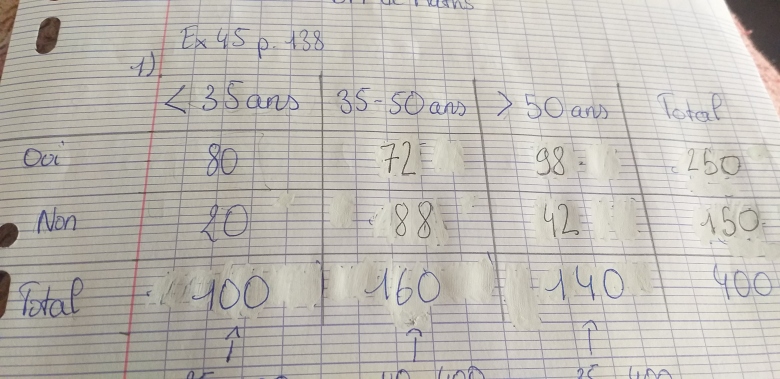 Ex 45 p. 138
1)
< 35 ans 35-50 ans > 50 ans Total
Oui 80 72 98 250
Non 20 88 42 150
Total 100 160 140 400
↑ ↑ ↑